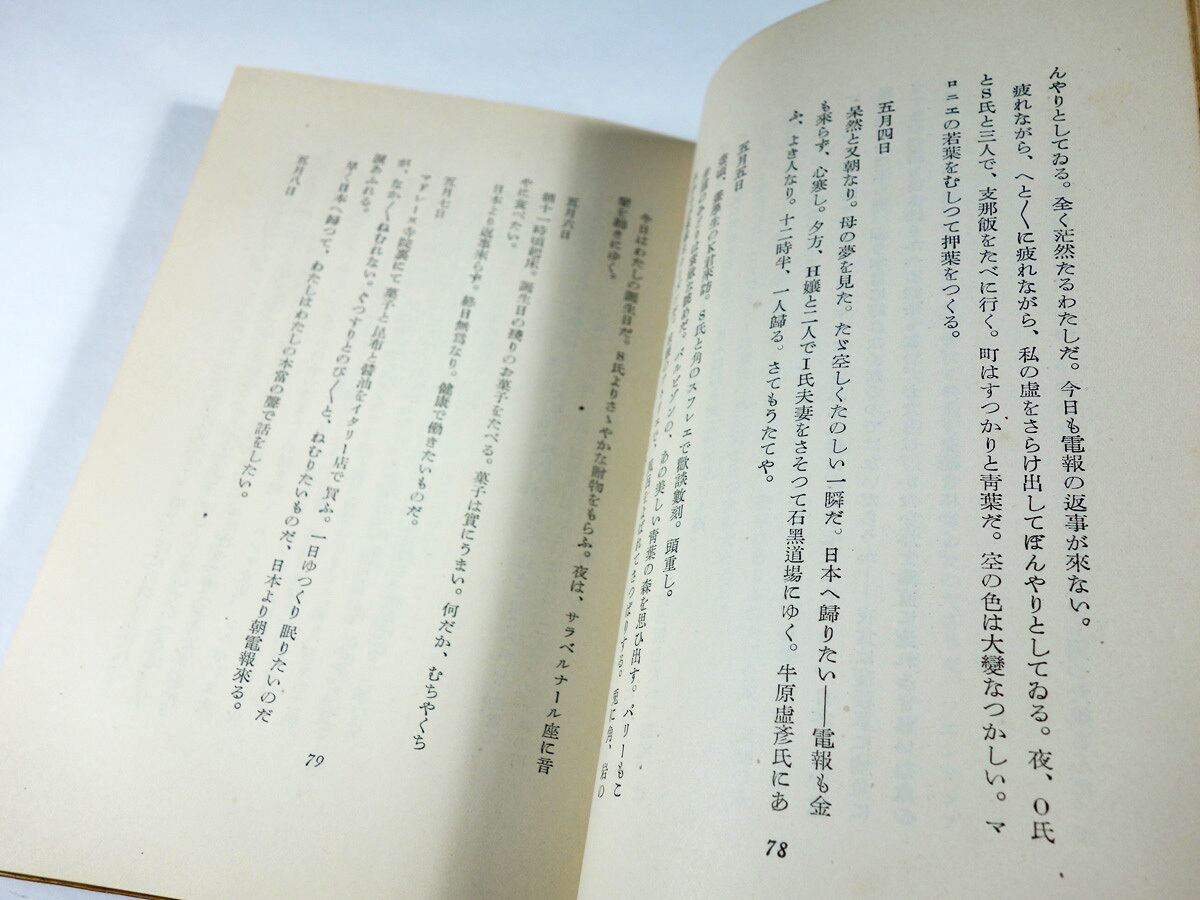 んやりとしてゐる。全く茫然たるわたしだ。今日も電報の返事が來ない。
疲れながら、へと〱に疲れながら、私の虚をさらけ出してぼんやりとしてゐる。夜、O氏
とS氏と三人で、支那飯をたべに行く。町はすつかりと靑葉だ。空の色は大變なつかしい。マ
ロニエの若葉をむしつて押葉をつくる。
五月四日
呆然と又朝なり。母の夢を見た。たゞ空しくたのしい一瞬だ。日本へ歸りたい――電報も金
も来らず、心寒し。夕方、H孃と二人でI氏夫妻をさそつて石黑道場にゆく。牛原虚彦氏にあ
ふ、よき人なり。十二時半、一人歸る。さてもうたてや。
78
五月五日
S氏と角のスフレエで歡談數刻。頭重し。
バルビゾンの、あの美しい靑葉の森を思ひ出す。パリーもこ
さつぱりする。兎に角、岩の
今日はわたしの誕生日だ。S氏よりさゝやかな贈物をもらふ。夜は、サラベルナール座に音
樂を聽きにゆく。
五月六日
朝十一時頃起床。誕生日の殘りのお菓子をたべる。菓子は實にうまい。何だか、むちやくち
やに食べたい。
日本より返事来らず。終日無爲なり。健康で働きたいものだ。
五月七日
マドレーヌ寺院裏にて菓子と昆布と醤油をイタリー店で買ふ。一日ゆつくり眠りたいのだ
が、なか〱ねむれない。ぐつすりとのび〱と、ねむりたいものだ、日本より朝電報來る。
淚あふれる。
早く日本へ歸つて、わたしはわたしの本當の聲で話をしたい。
五月八日
79